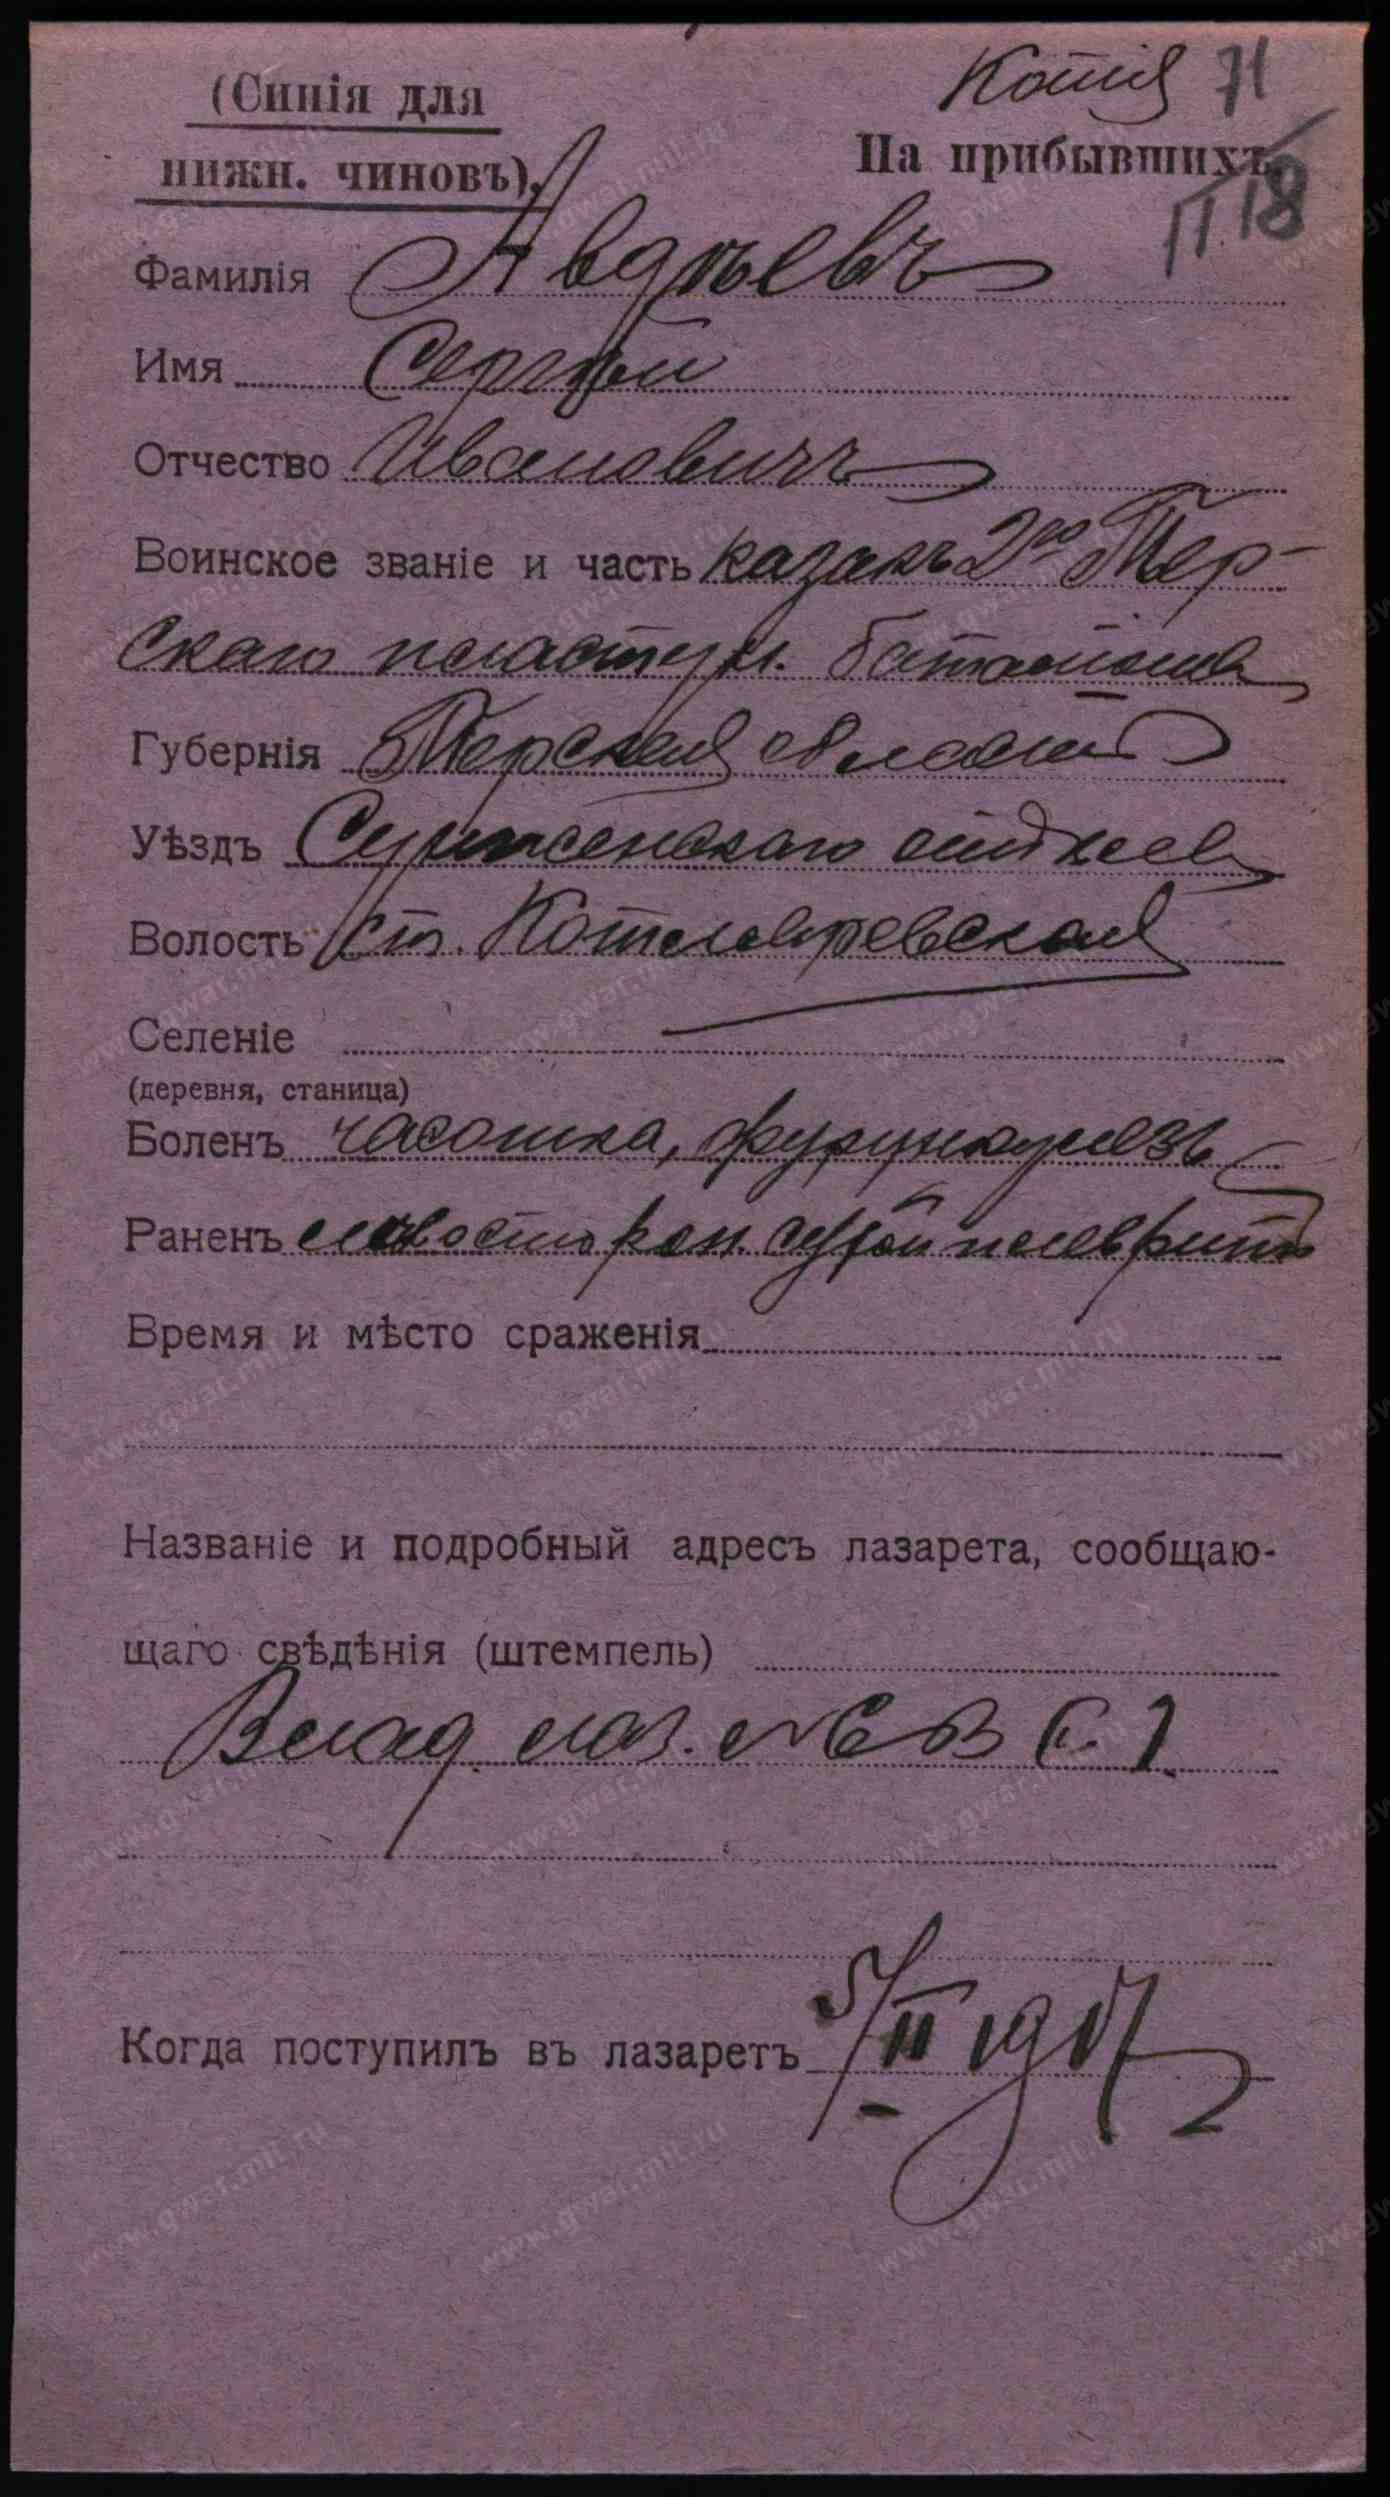 Копія 71
(Синія для
нижн. чиновъ).
На прибывшихъ
11 18
Фамилія Авдѣевъ
Имя Сергѣй
Отчество Ивановичъ
Воинское званіе и часть казакъ 2го Тер-
скаго пластун. баталіона
Губернія Терская область
Уѣздъ Сунженскаго отдѣла
Волость ст. Котляревская
Селеніе
(деревня, станица)
Боленъ чесотка, фурункулезъ
Раненъ лѣвосторон. сухой плевритъ
Время и мѣсто сраженія
Названіе и подробный адресъ лазарета, сообщаю-
щаго свѣдѣнія (штемпель)
Влад. лаз. № В С. 1
Когда поступилъ въ лазаретъ 5/II 1917